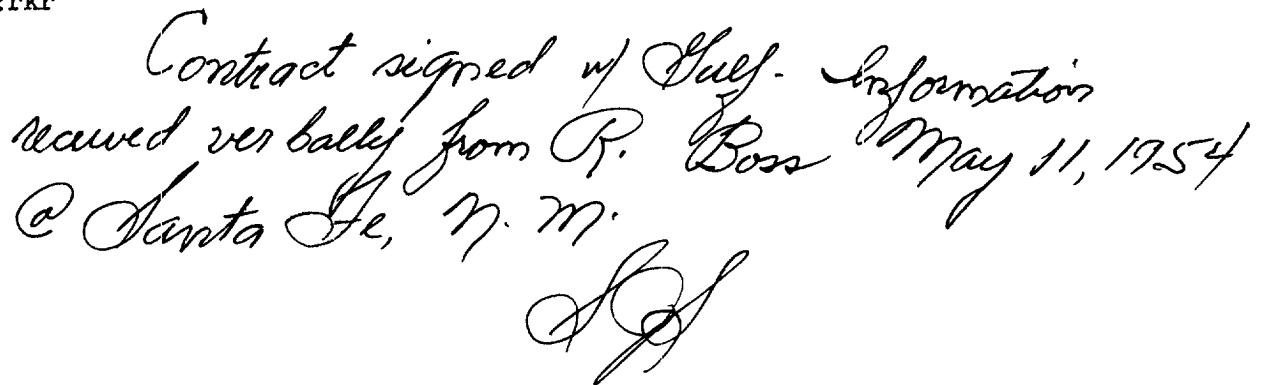 :rkr
Contract signed w/ Gulf - Information
received verbally from R. Boss May 11, 1954
@ Santa Fe, N. M.